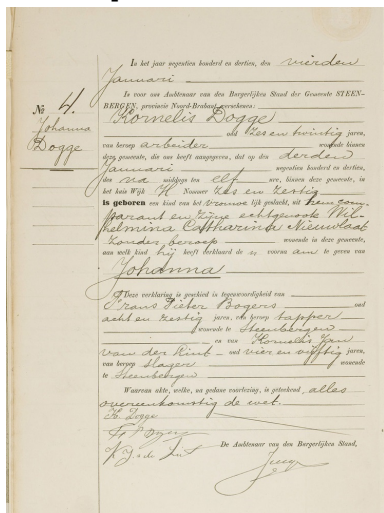 In het jaar negentien honderd en dertien, den vierden
Januari
Is voor ons Ambtenaar van den Burgerlijken Stand der Gemeente STEEN-
BERGEN, provincie Noord-Brabant verschenen:
No 4.
Johanna
Dogge
Kornelis Dogge
oud zes en twintig jaren,
van beroep arbeider wonende binnen
deze gemeente, die ons heeft aangegeven, dat op den derden
Januari negentien honderd en dertien,
des na middags ten elf ure, binnen deze gemeente, in
het huis Wijk H Nummer zes en zestig
is geboren een kind van het vrouwelijk geslacht, uit hem com-
parant en zijne echtgenoote Wil-
helmina Catharina Nieuwlaat
zonder beroep wonende in deze gemeente,
aan welk kind hij heeft verklaard de n voornaam te geven van
Johanna
Deze verklaring is geschied in tegenwoordigheid van
Frans Pieter Bogers oud
acht en zestig jaren, van beroep tapper
wonende te Steenbergen
en van Kornelis Jan
van der Rint oud vier en vijftig jaren,
van beroep slager wonende
te Steenbergen
Waarvan akte, welke, na gedane voorlezing, is geteekend alles
overeenkomstig de wet.
K. Dogge
De Ambtenaar van den Burgerlijken Stand,